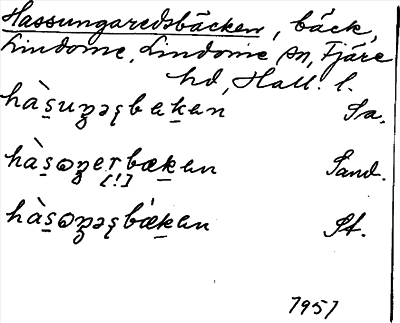 Hassungaredsbäcken, bäck,
Lindome, Lindome sn, Fjäre
hd, Hall. l.
hàs̱uŋ̱əʂbɛḵən Sa.
hàs̱ɷŋ̱erbæḵən Sand.
[!]
hàs̱ɷŋ̱əʂbæ̀ḵən St.
1951